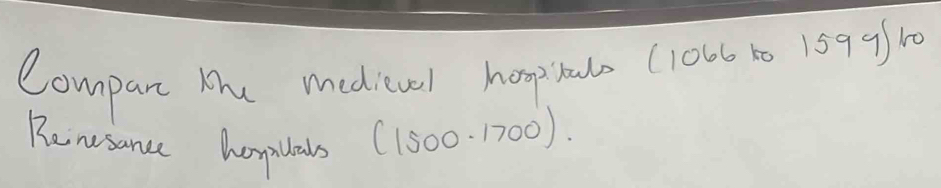 Compare the medieval hospitals (1066 to 1599) to
Reinesance hospitals (1500-1700).